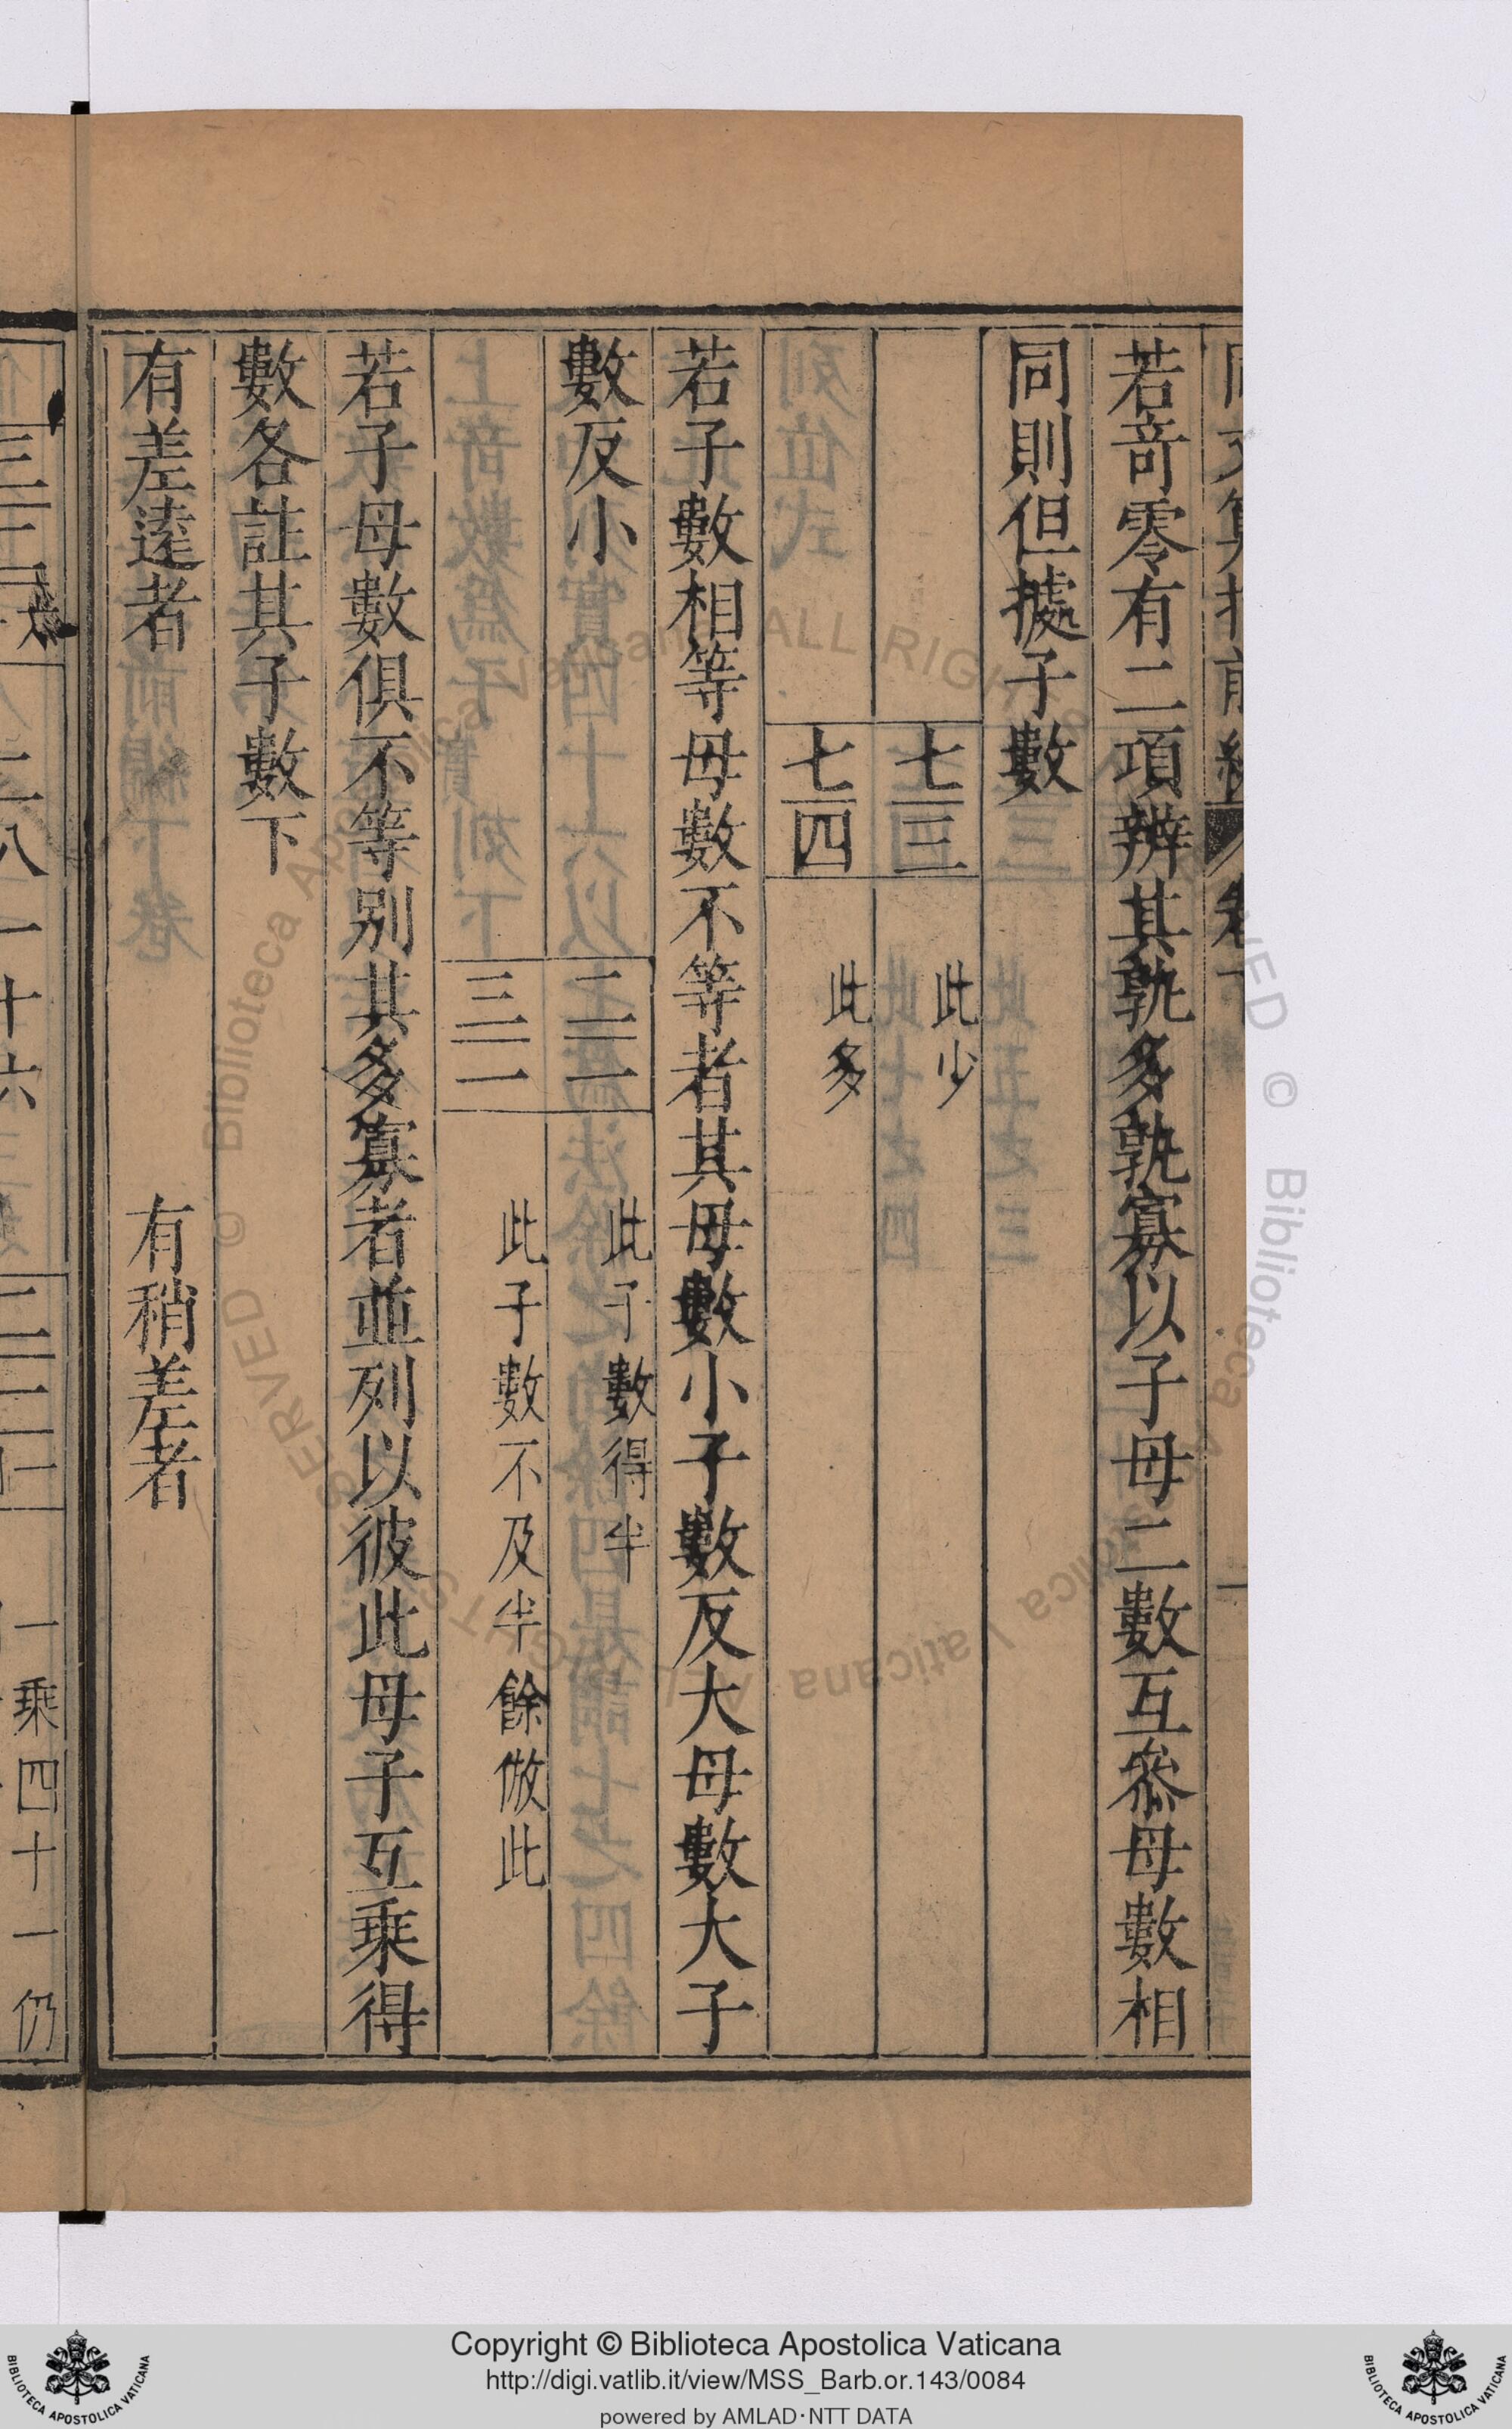 若奇零有二項辨其孰多孰寡以子母二數互叅母數相
同則但據子數
七三 此少
七四 此多
若子數相等母數不等者其母數小子數反大母數大子
數反小
二一 此子數得半
三一 此子數不及半餘倣此
若子母數俱不等別其多寡者並列以彼此母子互乘得
數各註其子數下
有差遠者 有稍差者
一乘四十一仍
Copyright © Biblioteca Apostolica Vaticana
http://digi.vatlib.it/view/MSS_Barb.or.143/0084
powered by AMLAD·NTT DATA
BIBLIOTECA APOSTOLICA VATICANA
BIBLIOTECA APOSTOLICA VATICANA